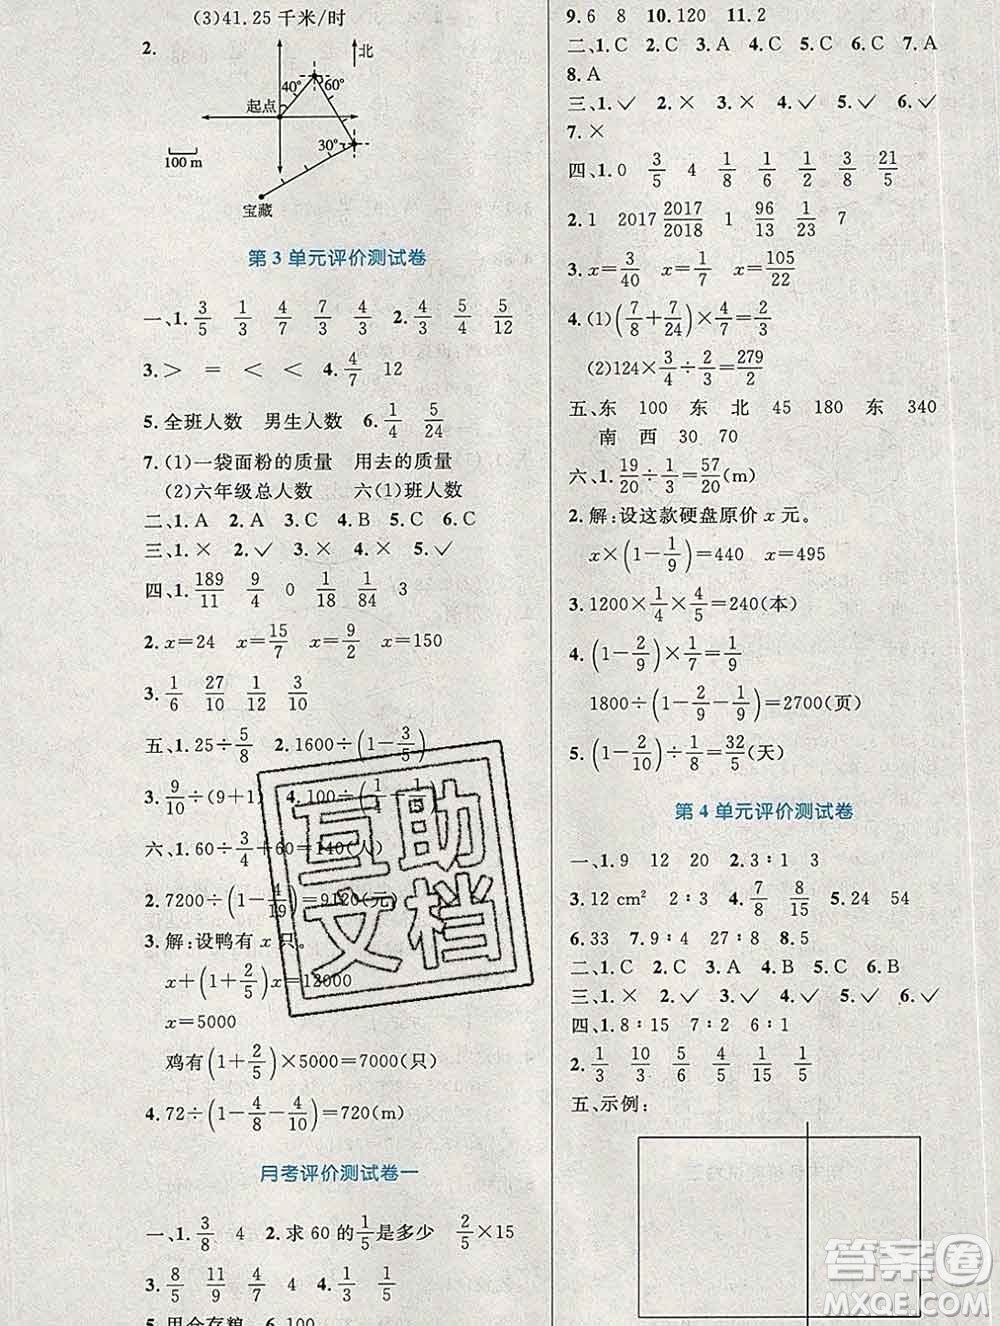 (3)41.25 千米/时
2.
北
40°
60°
起点
30°
100 m
宝藏
第 3 单元评价测试卷
一、1. 3/5 1/3 4/7 7/3 4/3 2. 4/3 5/4 5/12
3. > = < < 4. 4/7 12
5. 全班人数 男生人数 6. 1/4 5/24
7. (1)一袋面粉的质量 用去的质量
(2)六年级总人数 六(1)班人数
二、1. A 2. A 3. C 4. B 5. C 6. C
三、1. × 2. ✓ 3. × 4. × 5. ✓
四、1. 189/11 9/4 0 1/18 1/84 3
2. x=24 x=15/7 x=9/2 x=150
3. 1/6 27/10 1/12 3/10
五、1. 25÷5/8 2. 1600÷(1-3/5)
3. 9/10÷(9+1) 4. 100÷
六、1. 60÷3/4+60=140(人)
2. 7200÷(1-4/19)=9120(元)
3. 解:设鸭有 x 只。
x+(1+2/5)x=12000
x=5000
鸡有(1+2/5)×5000=7000(只)
4. 72÷(1-4/8-4/10)=720(m)
月考评价测试卷一
一、1. 3/8 4 2. 求 60 的1/5是多少 2/5×15
3. 5/8 11/9 4/7 4 4. 1/3 1/3
5. 甲仓存粮 6. 100
9. 6 8 10. 120 11. 2
二、1. C 2. C 3. A 4. C 5. C 6. C 7. A
8. A
三、1. ✓ 2. × 3. × 4. ✓ 5. ✓ 6. ✓
7. ×
四、1. 0 3/5 4 1/8 1/6 1/2 3/8 21/5
2. 1 2017 2017/2018 1 96/13 13/23 7
3. x=3/40 x=1/7 x=105/22
4. (1)(7/8+7/24)×4/7=2/3
(2)124×3/4÷2/3=279/2
五、东 100 东 北 45 180 东 340
南 西 30 70
六、1. 19/20÷1/3=57/20(m)
2. 解:设这款硬盘原价 x 元。
x×(1-1/9)=440 x=495
3. 1200×1/4×4/5=240(本)
4. (1-2/9)×1/7=1/9
1800×(1-2/9-1/9)=2700(页)
5. (1-2/10)÷1/8=32/5(天)
第 4 单元评价测试卷
一、1. 9 12 20 2. 3∶1 3
3. 12 cm² 4. 7/8 8/15 5. 24 54
6. 33 7. 9∶4 27∶8 8. 5
二、1. C 2. C 3. B 4. A 5. B 6. C
三、1. × 2. ✓ 3. ✓ 4. ✓ 5. ✓ 6. ✓
四、1. 8∶15 7∶2 6∶1
2. 1/3 10/3 5/6 4/3 1/3
五、示例:
互助
文档
答案圈
MXQE.COM